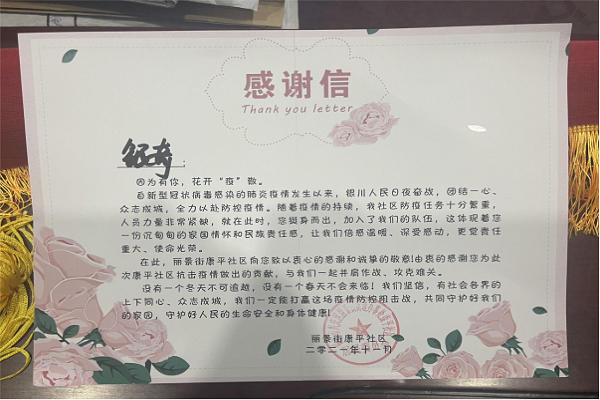 感谢信
Thank you letter
因为有你，花开“疫”散。
自新型冠状病毒感染的肺炎疫情发生以来，银川人民日夜奋战，团结一心、
众志成城，全力以赴防控疫情。随着疫情的持续，我社区防疫任务十分繁重，
人员力量非常紧缺，就在此时，您挺身而出，加入了我们的队伍，这体现着您
一份沉甸甸的家国情怀和民族责任感，让我们倍感温暖、深受感动，更觉责任
重大、使命光荣。
在此，丽景街康平社区向您致以衷心的感谢和诚挚的敬意!由衷的感谢您为此
次康平社区抗击疫情做出的贡献，与我们一起并肩作战、攻克难关。
没有一个冬天不可逾越，没有一个春天不会来临！我们坚信，有社会各界的
上下同心、众志成城，我们一定能打赢这场疫情防控阻击战，共同守护好我们
的家园，守护好人民的生命安全和身体健康!
丽景街康平社区
二零二一年十一月